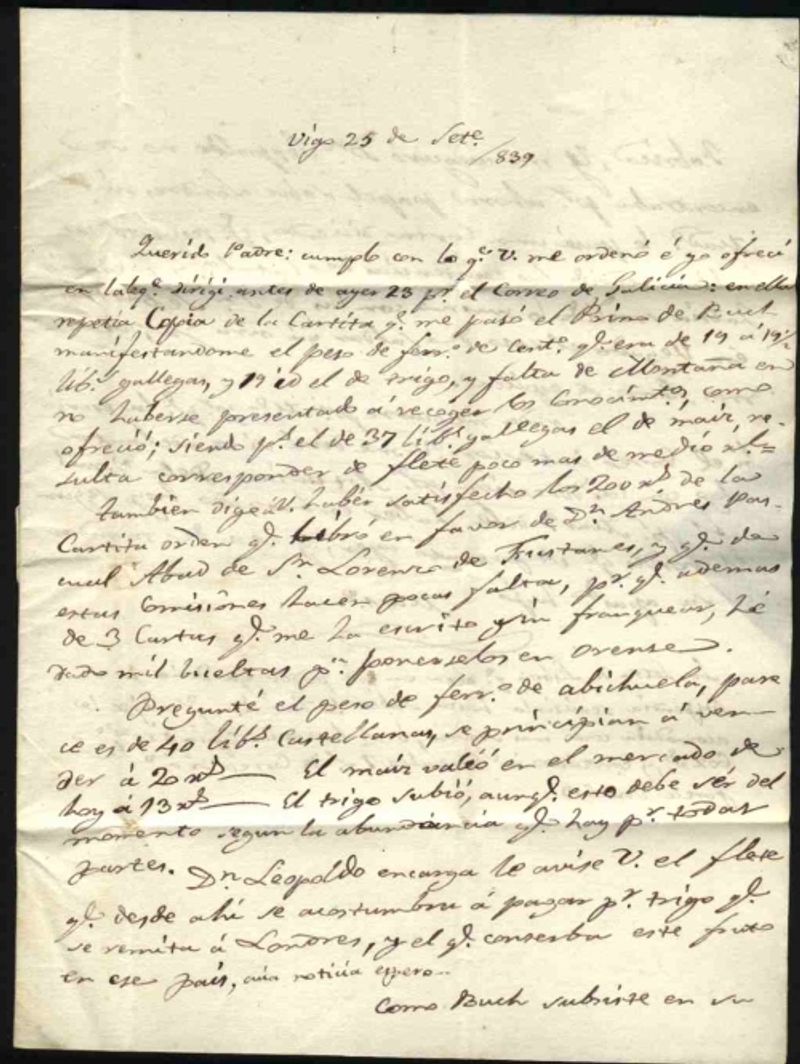 Vigo 25 de Sete.
/839
Querido Padre: cumplo con lo q.e V. me ordenó é yo ofrecí
en la q.e dirigí antes de ayer 23 p.r el Correo de Galicia: en ella
repetía Copia de la Cartita q.e me pasó el Primo de Buch
manifestandome el peso de ferr.o de cent.o q.e era de 19 á 19 1/2
lib.s gallegas, y 19 id el de trigo, y falta de Montaña en
no haberse presentado á recoger los Conocim.tos, como
ofreció; siendo p.s el de 37 lib.s gallegas el de maiz, re-
sulta corresponder de flete poco mas de medio r.l=
tambien dige á V. haber satisfecho los 200 r.s de la
Cartita orden q.e libró en favor de D.n Andrés Pas-
cual Abad de S.n Lorenzo de Fustanes, y q.e de
estas Comisiones hacen pocas falta, p.r q.e ademas
de 3 Cartas q.e me ha escrito y sin franquear, hé
dado mil bueltas p.a ponerselos en Orense.
Pregunté el peso de ferr.o de abichuela, pare
ce es de 40 lib.s Castellanas, se principian á ven-
der á 20 r.s — El maiz valió en el mercado de
hoy á 13 r.s — El trigo subió, aunq.e esto debe sér del
momento segun la abundancia q.e hay p.r todas
partes. D.n Leopoldo encarga le avise V. el flete
q.e desde ahí se acostumbra á pagar p.r trigo q.e
se remita á Londres, y el q.e conserba este fruto
en ese país, cuia noticia espero..
Como Buch subsiste en su